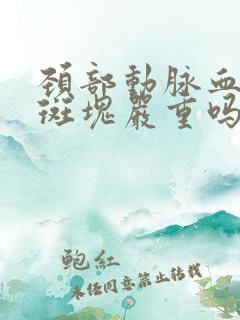 頚部動脉血
斑塊嚴重吗
鲍紅
未经同意禁止转载